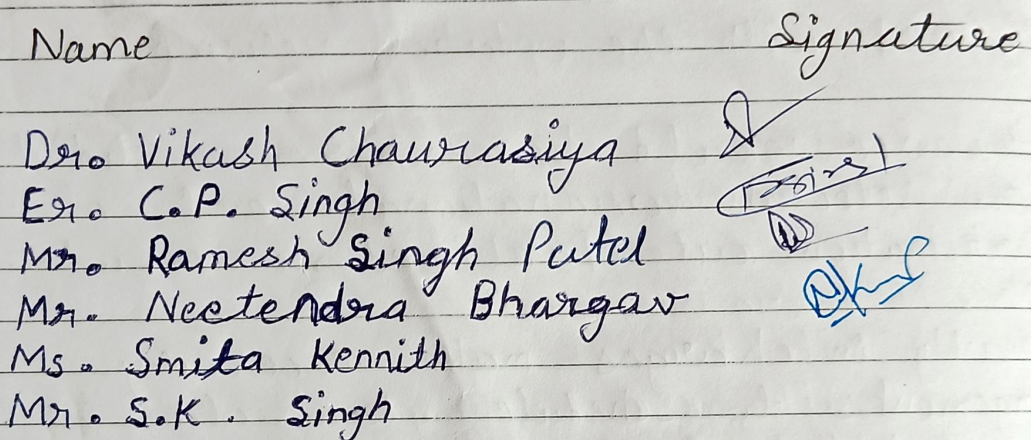 Name Signature
Dr. Vikash Chaurasiya
Er. C.P. Singh
Mr. Ramesh Singh Patel
Mr. Neetendra Bhargav
Ms. Smita Kennith
Mr. S.K. Singh